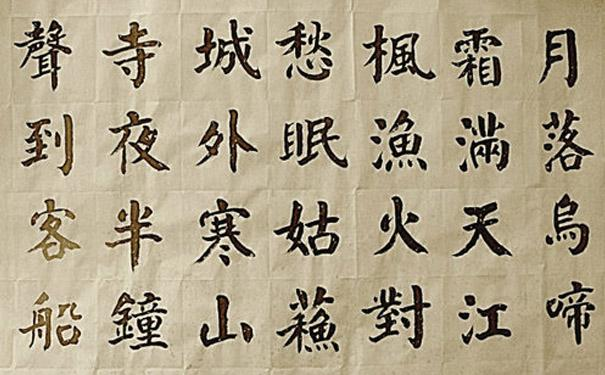 月落烏啼
霜滿天江
楓漁火對
愁眠姑蘓
城外寒山
寺夜半鐘
聲到客船